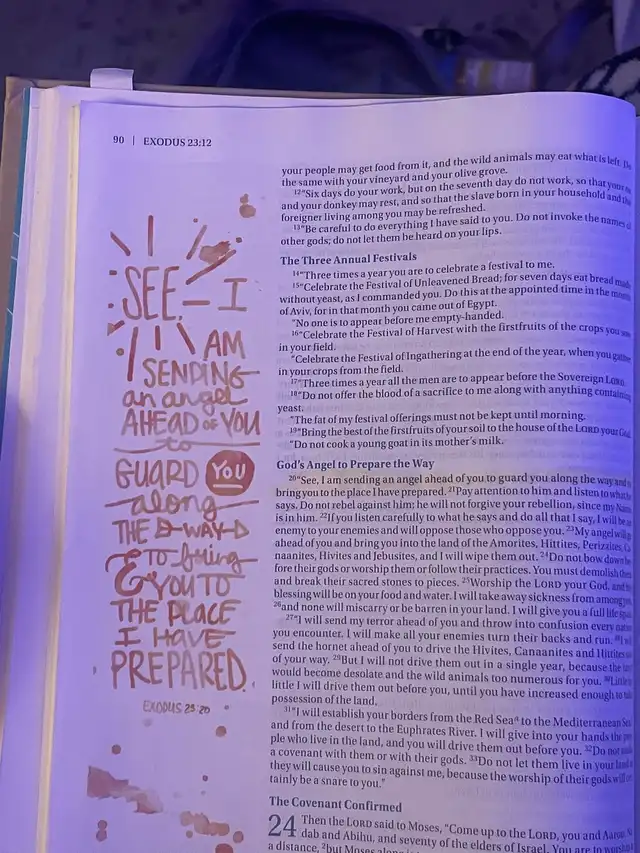 90 | EXODUS 23:12
SEE, I
AM
SENDING
an angel
AHEAD OF YOU
to
GUARD YOU
along
THE WAY
& to bring
YOU TO
THE PLACE
I HAVE
PREPARED.
EXODUS 23:20
your people may get food from it, and the wild animals may eat what is left. Do
the same with your vineyard and your olive grove.
12“Six days do your work, but on the seventh day do not work, so that your
and your donkey may rest, and so that the slave born in your household and the
foreigner living among you may be refreshed.
13“Be careful to do everything I have said to you. Do not invoke the names
other gods; do not let them be heard on your lips.
The Three Annual Festivals
14“Three times a year you are to celebrate a festival to me.
15“Celebrate the Festival of Unleavened Bread; for seven days eat bread made
without yeast, as I commanded you. Do this at the appointed time in the month
of Aviv, for in that month you came out of Egypt.
“No one is to appear before me empty-handed.
16“Celebrate the Festival of Harvest with the firstfruits of the crops you
in your field.
“Celebrate the Festival of Ingathering at the end of the year, when you gather
in your crops from the field.
17“Three times a year all the men are to appear before the Sovereign LORD.
18“Do not offer the blood of a sacrifice to me along with anything containing
yeast.
“The fat of my festival offerings must not be kept until morning.
19“Bring the best of the firstfruits of your soil to the house of the LORD your
“Do not cook a young goat in its mother’s milk.
God’s Angel to Prepare the Way
20“See, I am sending an angel ahead of you to guard you along the way and
bring you to the place I have prepared. 21Pay attention to him and listen to what
says. Do not rebel against him; he will not forgive your rebellion, since my Name
is in him. 22If you listen carefully to what he says and do all that I say, I will be
enemy to your enemies and will oppose those who oppose you. 23My angel will
ahead of you and bring you into the land of the Amorites, Hittites, Perizzites, Ca
naanites, Hivites and Jebusites, and I will wipe them out. 24Do not bow down
fore their gods or worship them or follow their practices. You must demolish them
and break their sacred stones to pieces. 25Worship the LORD your God, and
blessing will be on your food and water. I will take away sickness from among
26and none will miscarry or be barren in your land. I will give you a full life
27“I will send my terror ahead of you and throw into confusion every
you encounter. I will make all your enemies turn their backs and run. 28I
send the hornet ahead of you to drive the Hivites, Canaanites and Hittites
of your way. 29But I will not drive them out in a single year, because the
would become desolate and the wild animals too numerous for you. 30Little
little I will drive them out before you, until you have increased enough to
possession of the land.
31“I will establish your borders from the Red Sea to the Mediterranean Sea
and from the desert to the Euphrates River. I will give into your hands the
ple who live in the land, and you will drive them out before you. 32Do not
a covenant with them or with their gods. 33Do not let them live in your land
they will cause you to sin against me, because the worship of their gods will
tainly be a snare to you.”
The Covenant Confirmed
24 Then the LORD said to Moses, “Come up to the LORD, you and Aaron,
dab and Abihu, and seventy of the elders of Israel. You are to worship
a distance, 2but Moses